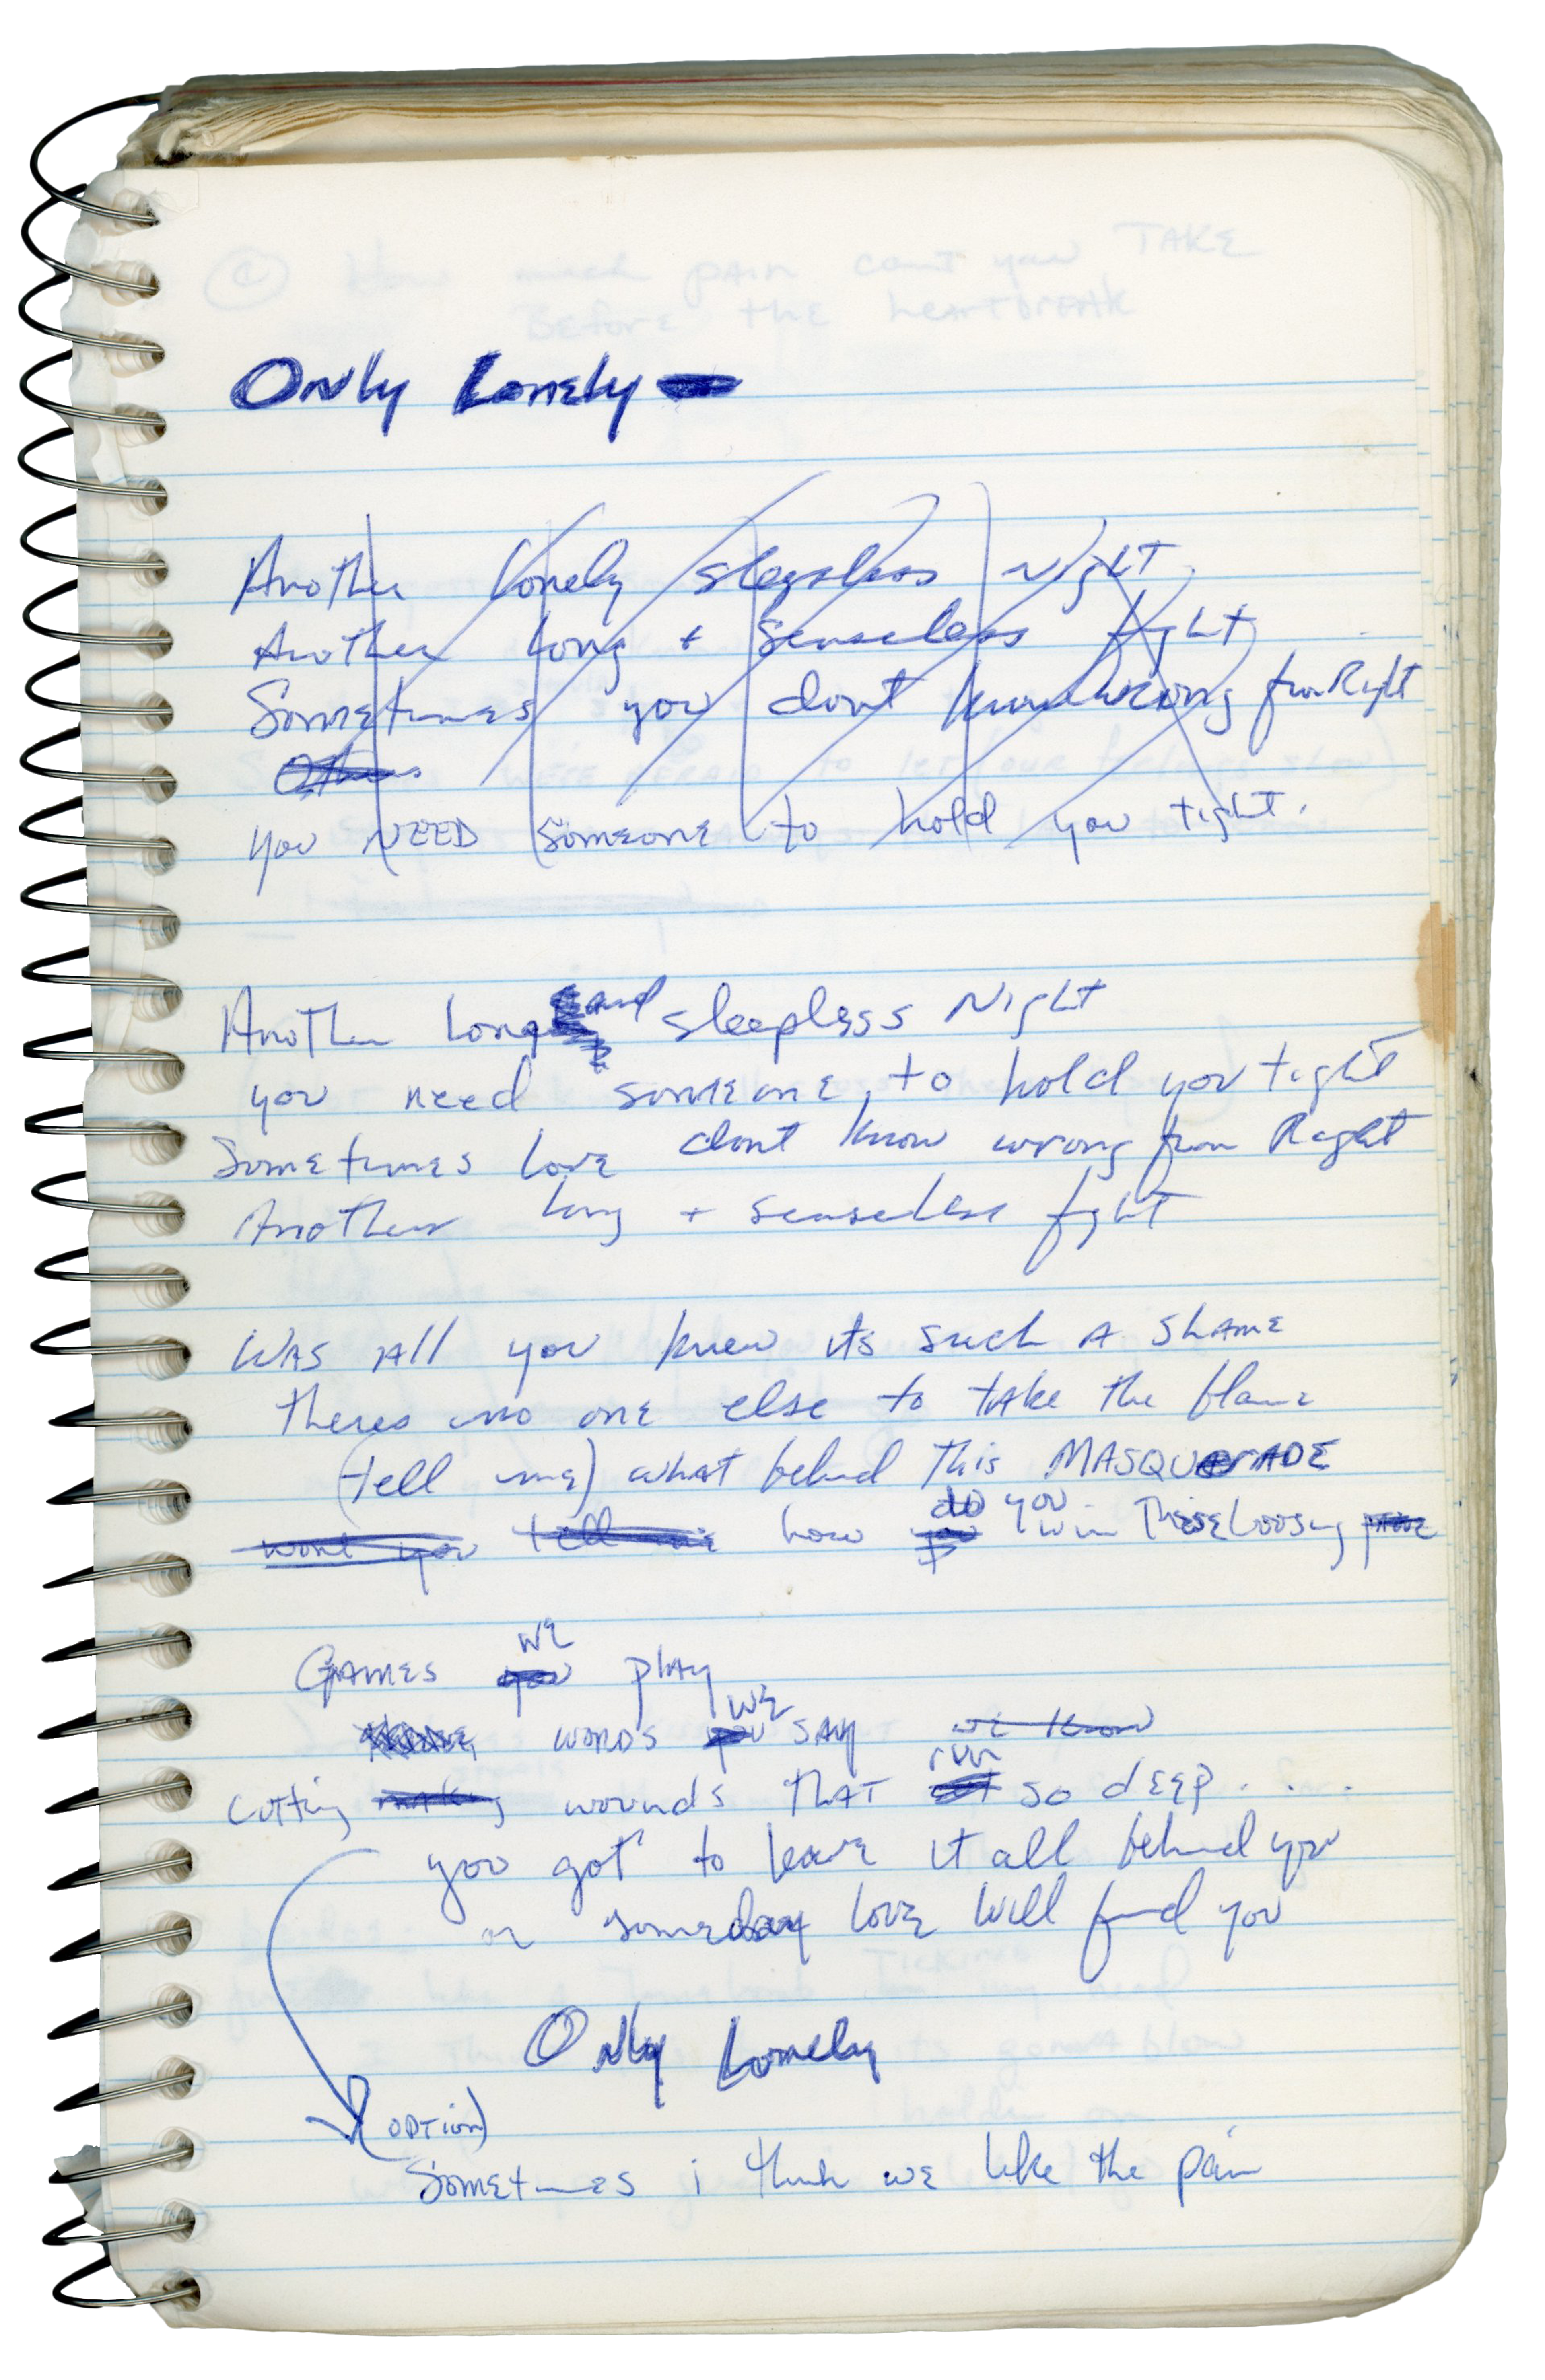 Only Lonely
Another lonely sleepless night
Another long + senseless fight
Sometimes you dont know wrong from Right
Others
you NEED someone to hold you tight.
Another Long and sleepless Night
you need someone to hold you tight
Sometimes love dont know wrong from Right
Another long + senseless fight
WAS All you knew its such A shame
theres no one else to take the blame
(tell me) what behind this MASQUERADE
wont you tell me how do you win These Loosing
GAMES you we play
words you we say we know
cutting making wounds THAT run so deep . . .
you got to leave it all behind you
or someday love will find you
Only Lonely
(option)
Sometimes i think we like the pain